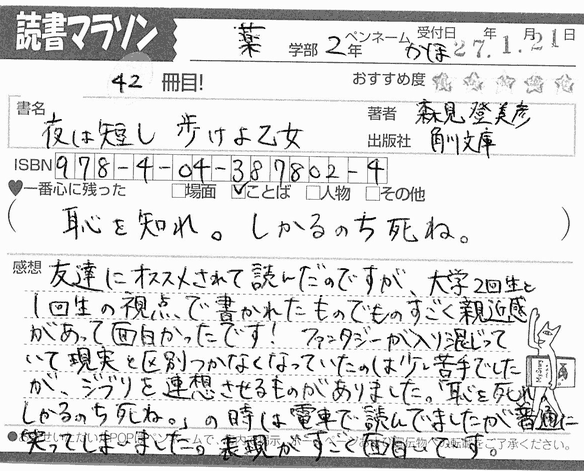 読書マラソン
薬 学部 2年 ペンネーム かほ 受付日 27年1月21日
42 冊目! おすすめ度
書名 夜は短し 歩けよ乙女
著者 森見登美彦
出版社 角川文庫
ISBN 978-4-04-387802-4
♥一番心に残った □場面 ☑ことば □人物 □その他
(恥を知れ。しかるのち死ね。)
感想 友達にオススメされて読んだのですが、大学2回生と
1回生の視点で書かれたものでものすごく親近感
があって面白かったです! ファンタジーが入り混じって
いて現実と区別つかなくなっていたのは少し苦手でした
が、ジブリを連想させるものがありました。「恥を死れ
しかるのち死ね。」の時は電車で読んでましたが普通に
笑ってしまいました。表現がすごく面白いです。